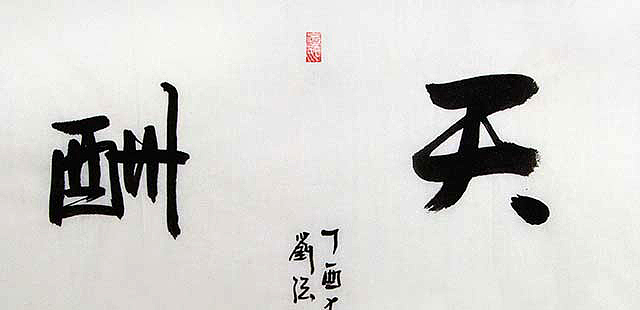 天酬
丁酉
劉